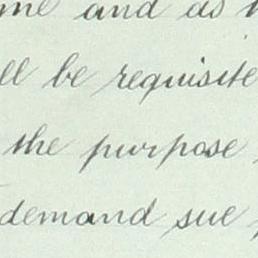 me and as
ll be requisite
the purpose
demand sue